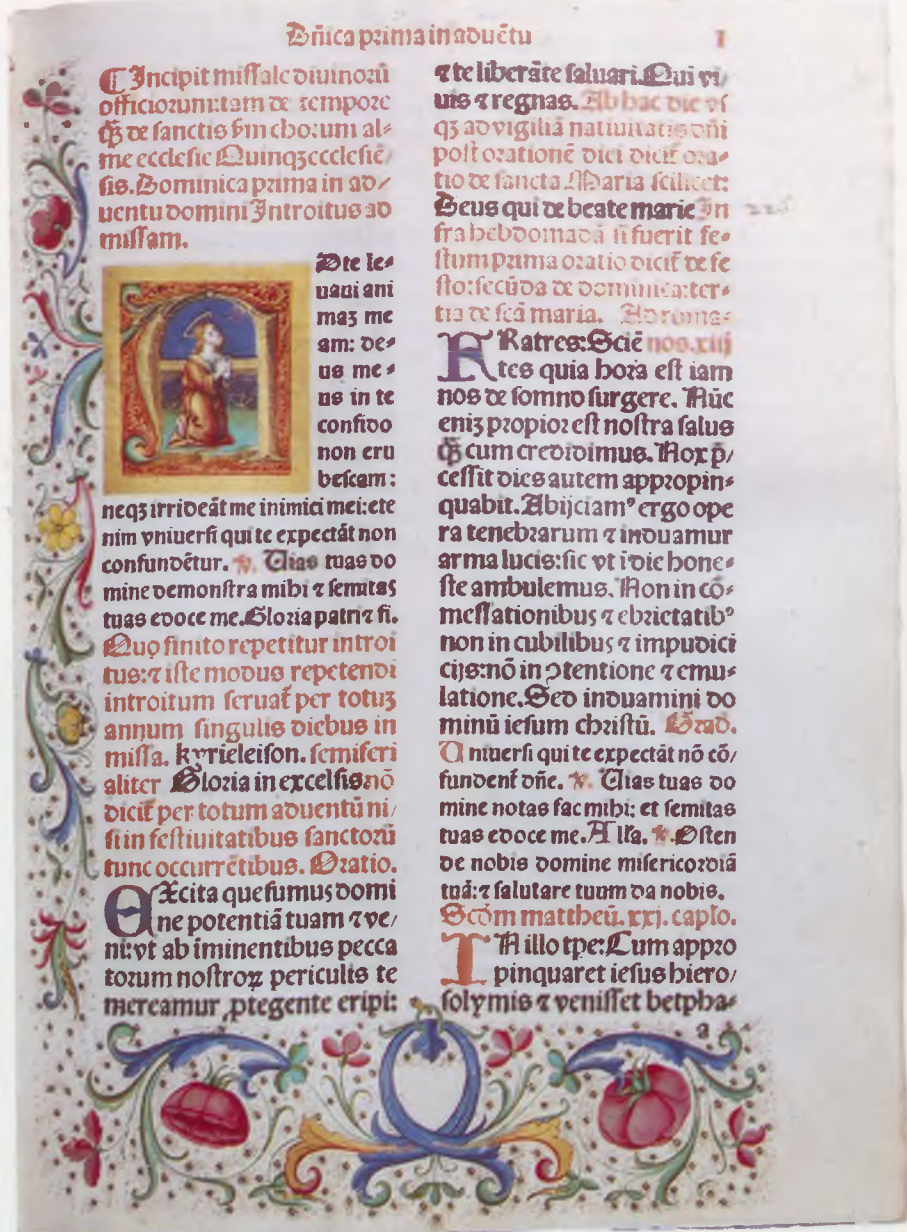 Dñica prima in aduẽtu I
¶ Incipit missale diuinoꝝ
officiorum: tam de tempore
qꝫ de sanctis ẜm chorum al⸗
me ecclesie Quinqꝫecclesiẽ/
sis. Dominica prima in ad/
uentu domini Introitus ad
missam.
AD te le⸗
uaui ani
maꝫ me
am: de⸗
us me⸗
us in te
confido
non eru
bescam:
neqꝫ irrideãt me inimici mei: ete
nim vniuersi qui te expectãt non
confundẽtur. ℣. Uias tuas do
mine demonstra mihi ⁊ semitas
tuas edoce me. Gloria patri ⁊ fi.
Quo finito repetitur introi
tus: ⁊ iste modus repetendi
introitum seruat̃ per totuꝫ
annum singulis diebus in
missa. kyrieleison. semiferi
aliter Gloria in excelsis nõ
dicit̃ per totum aduentũ ni/
si in festiuitatibus sanctoꝝ
tunc occurrẽtibus. Oratio.
EXcita quesumus domi
ne potentiã tuam ⁊ ve/
ni: vt ab ĩminentibus pecca
torum nostroꝝ periculis te
mereamur ꝓtegente eripi:
⁊ te liberãte saluari. Qui vi/
uis ⁊ regnas. Ab hac die vs
qꝫ ad vigiliã natiuitatis dñi
post orationẽ diei dicit̃ ora⸗
tio de sancta Maria scilicet:
Deus qui de beate marie In
fra hebdomadã si fuerit fe⸗
stum prima oratio dicit̃ de fe
sto: secũda de dominica: ter⸗
tia de scã maria. Ad roma⸗
FRatres: Sciẽ nos. xiij
tes quia hora est iam
nos de somno surgere. Nũc
eniꝫ propior est nostra salus
qꝫ cum credidimus. Nox p̃/
cessit dies autem appropin⸗
quabit. Abijciamꝰ ergo ope
ra tenebrarum ⁊ induamur
arma lucis: sic vt ĩ die hone⸗
ste ambulemus. Non in cõ⸗
messationibus ⁊ ebrietatibꝰ
non in cubilibus ⁊ impudici
cijs: nõ in ↄtentione ⁊ emu⸗
latione. Sed induamini do
minũ iesum christũ. Grad.
Uniuersi qui te expectãt nõ cõ/
fundent̃ dñe. ℣. Uias tuas do
mine notas fac mihi: et semitas
tuas edoce me. Alła. ℣. Osten
de nobis domine misericordiã
tuã: ⁊ salutare tuum da nobis.
Scd̃m mattheũ. xxj. caplo.
IN illo tpe: Cum appro
pinquaret iesus hiero/
solymis ⁊ venisset betpha⸗
a